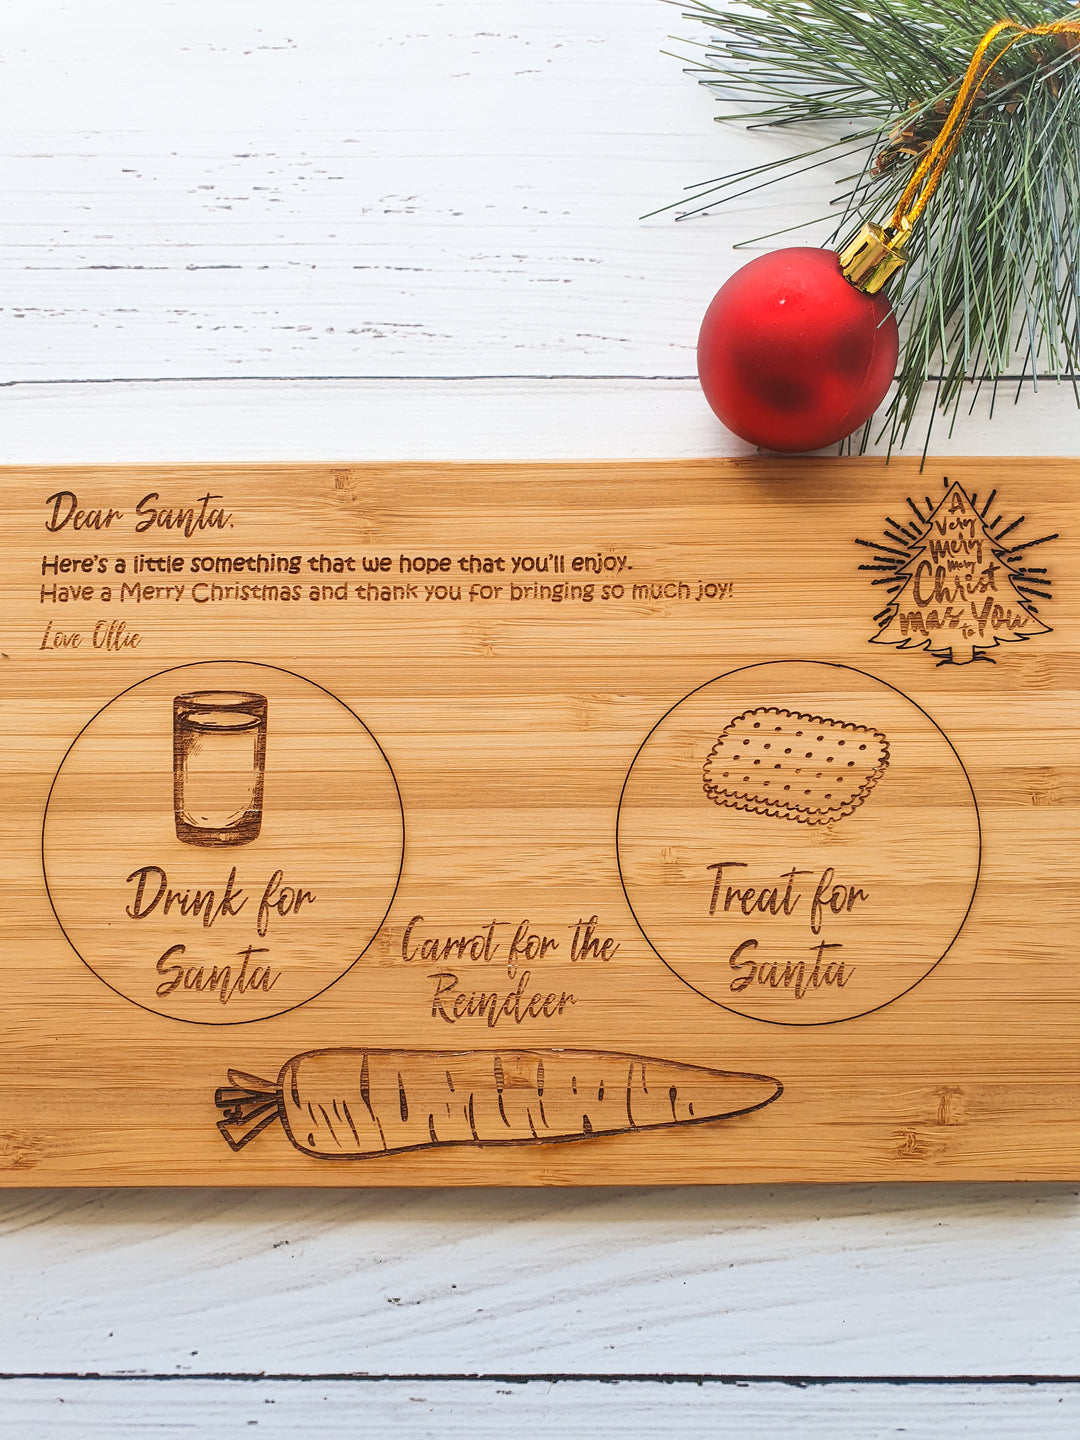 Dear Santa,
Here's a little something that we hope that you'll enjoy.
Have a Merry Christmas and thank you for bringing so much joy!
Love Ollie
A
very
merry
merry
Christ
mas to You
Drink for
Santa
Treat for
Santa
Carrot for the
Reindeer